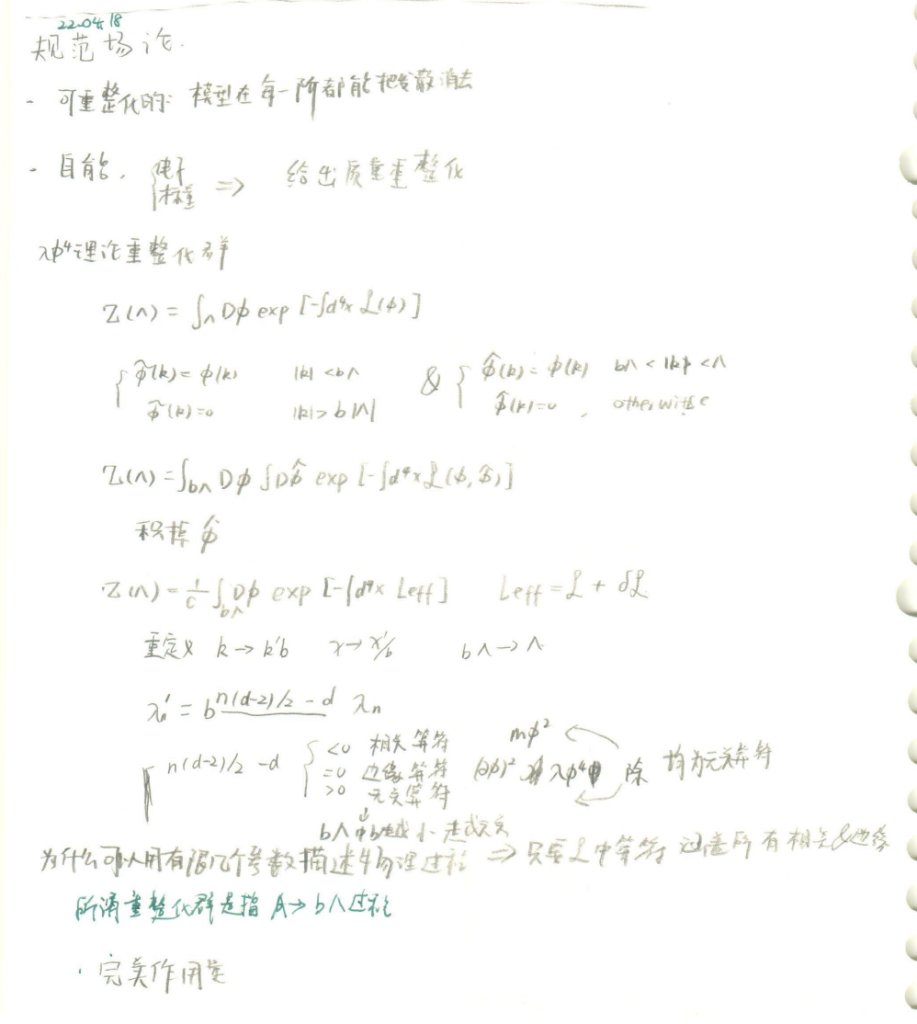 22.04.18
规范场论.
- 可重整化的: 模型在每一阶都能把发散消去
- 自能. { 电子 标量 => 给出质量重整化
λφ⁴理论重整化群
Z(Λ) = ∫_Λ Dφ exp [-∫d⁴x ℒ(φ)]
{ φ̃(k) = φ(k) |k| < bΛ & { φ̂(k) = φ(k) bΛ < |k| < Λ
φ̃(k) = 0 |k| > b|Λ| φ̂(k) = 0 , otherwise
Z(Λ) = ∫_{bΛ} Dφ ∫Dφ̂ exp [-∫d⁴x ℒ(φ, φ̂)]
积掉 φ̂
Z(Λ) = 1/c ∫_{bΛ} Dφ exp [-∫d⁴x Leff] Leff = ℒ + δℒ
重定义 k → k'b x → x'/b bΛ → Λ
λ'ₙ = b^{n(d-2)/2 - d} λₙ
n(d-2)/2 - d { <0 相关算符 mφ²
=0 边缘算符 (∂φ)² λφ⁴ 除 均为无关算符
>0 无关算符
bΛ中b越小 越无关
为什么可以用有限几个参数描述物理过程 => 只要ℒ中算符 涵盖所有相关&边缘
所谓重整化群是指 Λ → bΛ过程
· 完美作用量